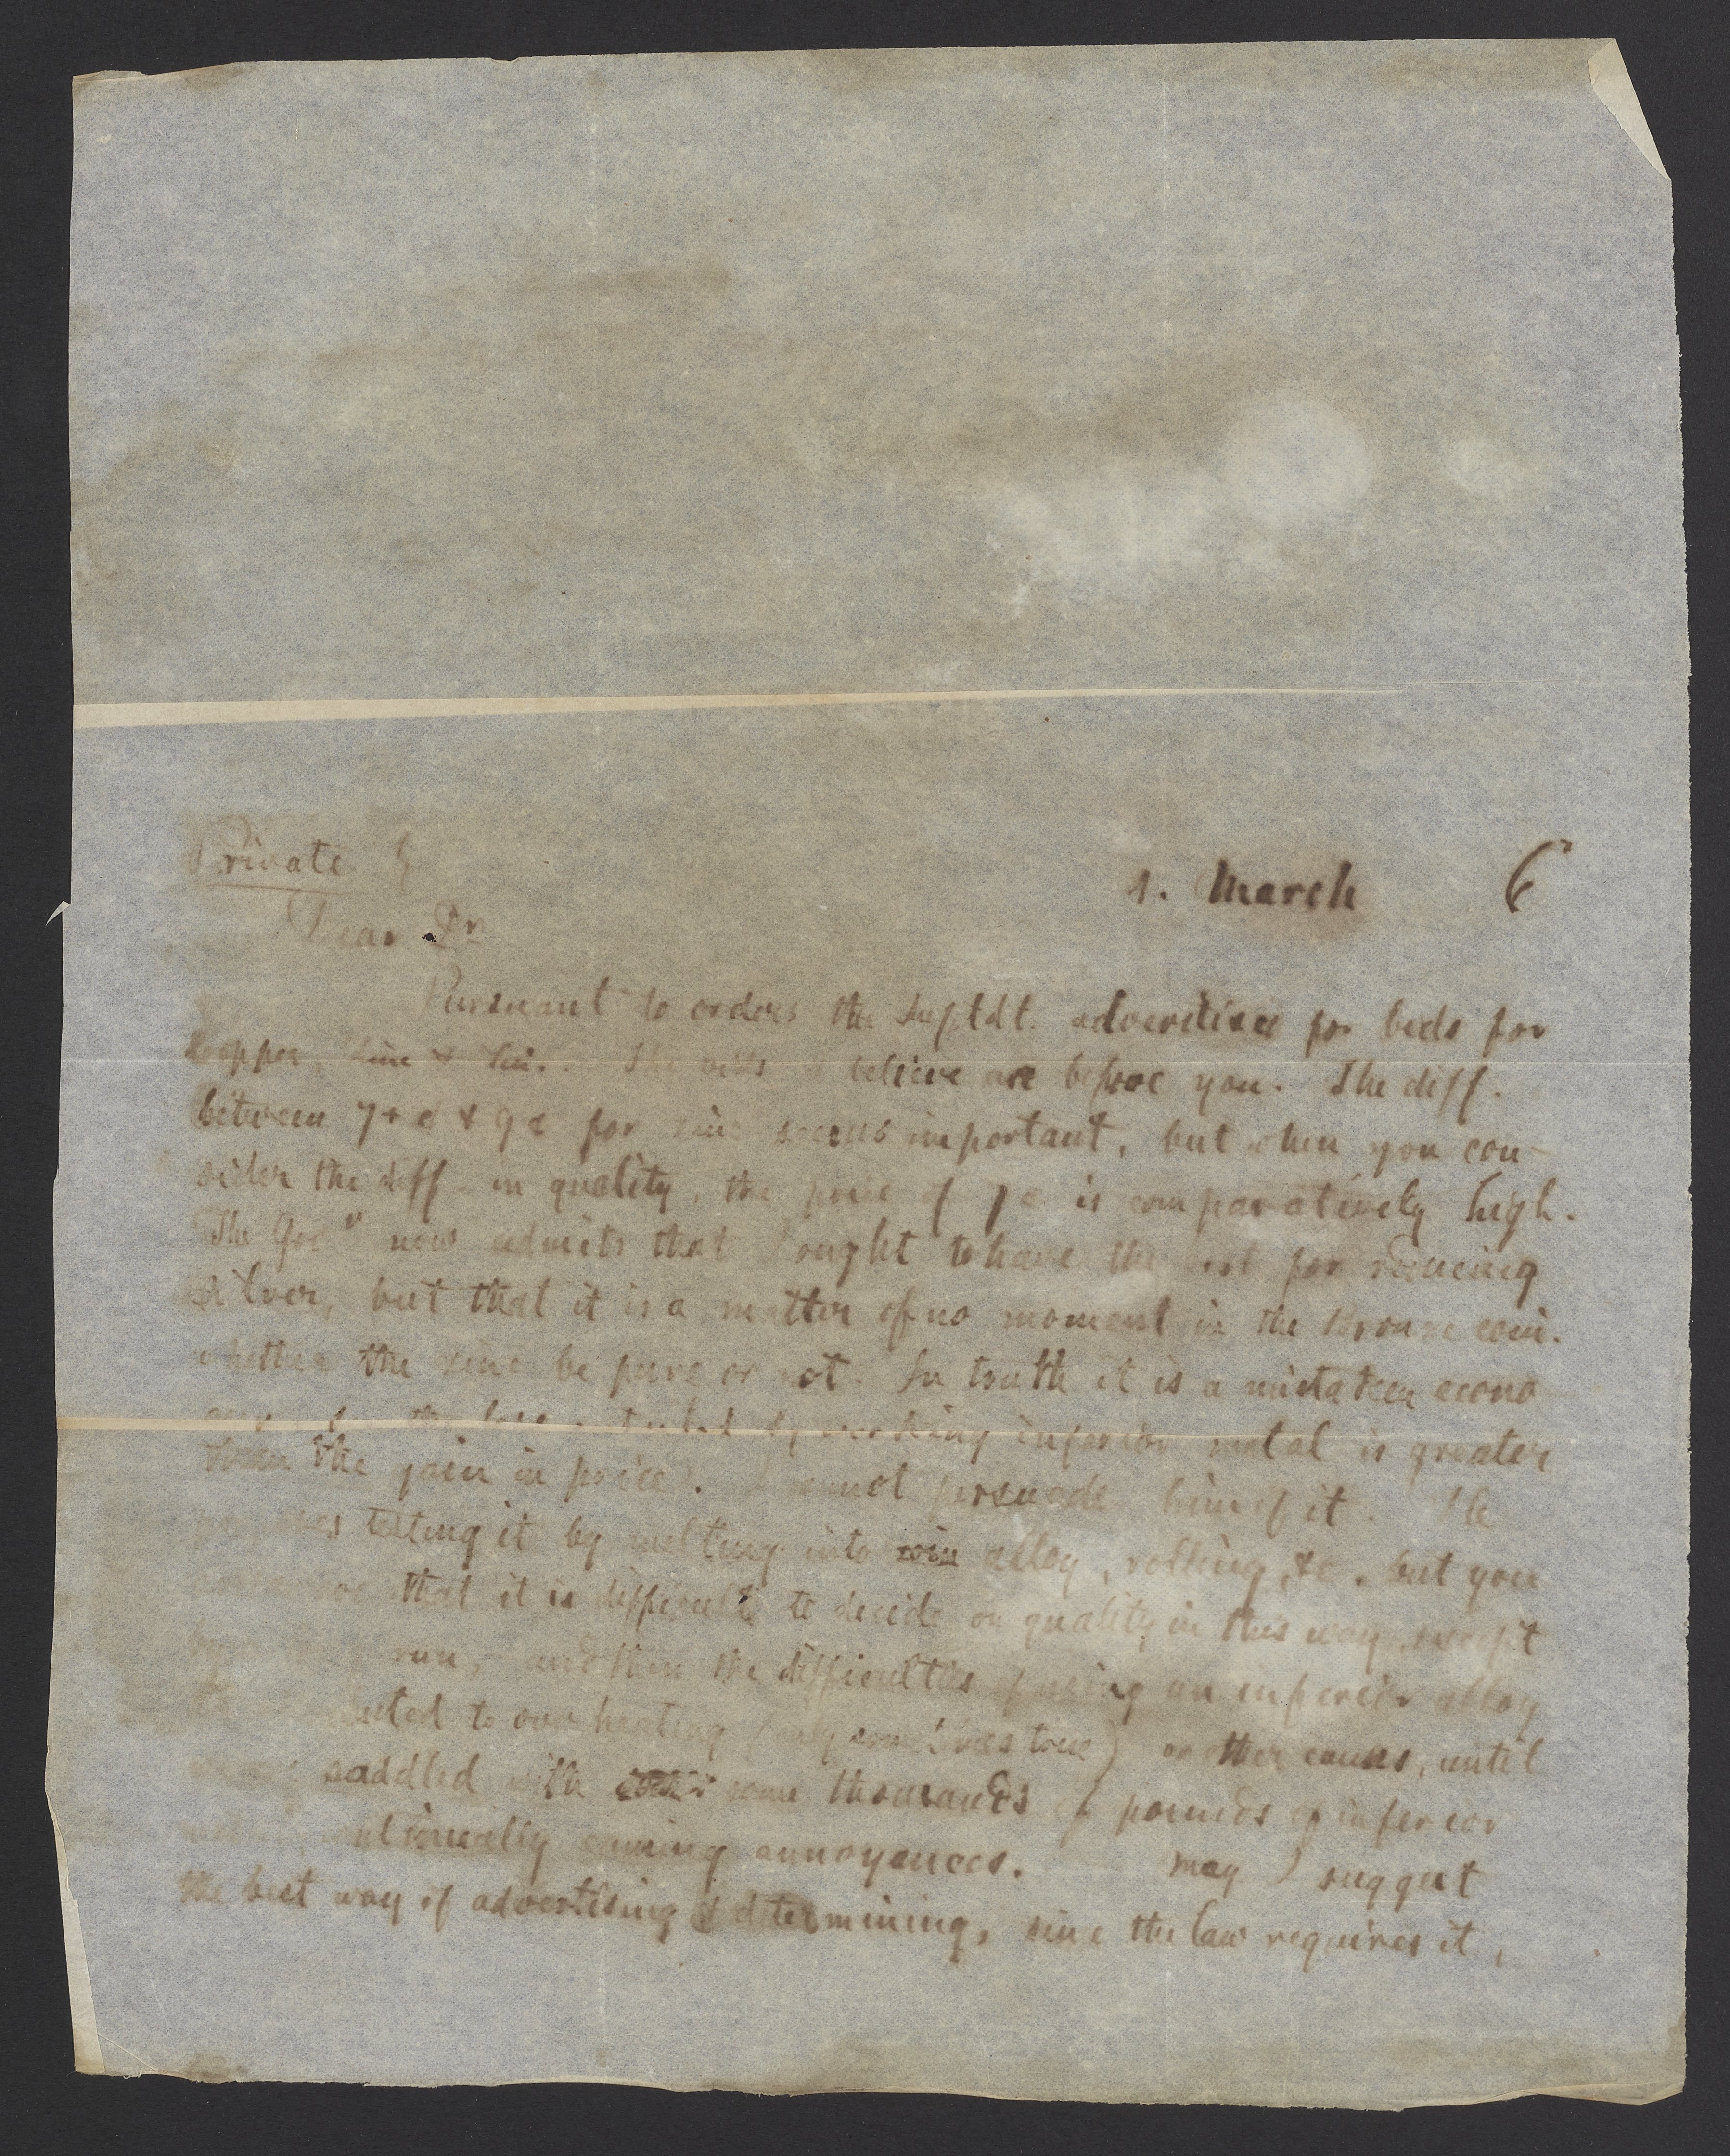 Private
1. March 6
Dear Dr
Pursuant to orders the Suptdt. advertised for bids for
copper, zinc & tin. The bids I believe are before you. The diff.
between 7+ c & 9 c for zinc seems important, but when you con-
sider the diff- in quality, the price of 7 c is comparatively high.
The Govr now admits that I ought to have the best for reducing
silver, but that it is a matter of no moment in the bronze coin.
whether the zinc be pure or not. In truth it is a mistaken econo
the loss by working inferior metal is greater
than the gain in price. I cannot persuade him of it. He
proposes testing it by melting into coin alloy, rolling, &c. but you
that it is difficult to decide on quality in this way, except
run, and then the difficulties of using an inferior alloy
to over heating (only sometimes true) or other causes, until
saddled with some thousands of pounds of inferior
continually causing annoyances. May I suggest
the best way of advertising & determining, since the law requires it,